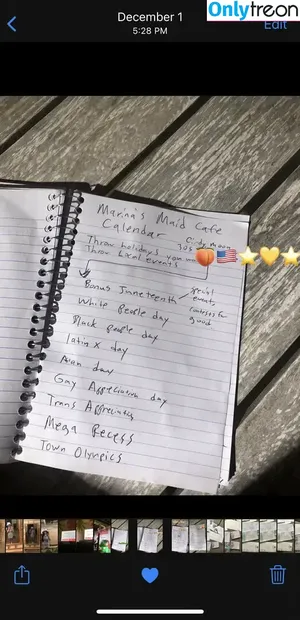 December 1
5:28 PM
Onlytreon
Edit
Marina's Maid Cafe
Calendar
Throw holidays
Throw local events
Bonus Juneteenth
special
events
White People day
good
Black People day
Latin X day
Asian day
Gay Appreciation day
Trans Appreciation
Mega Recess
Town Olympics